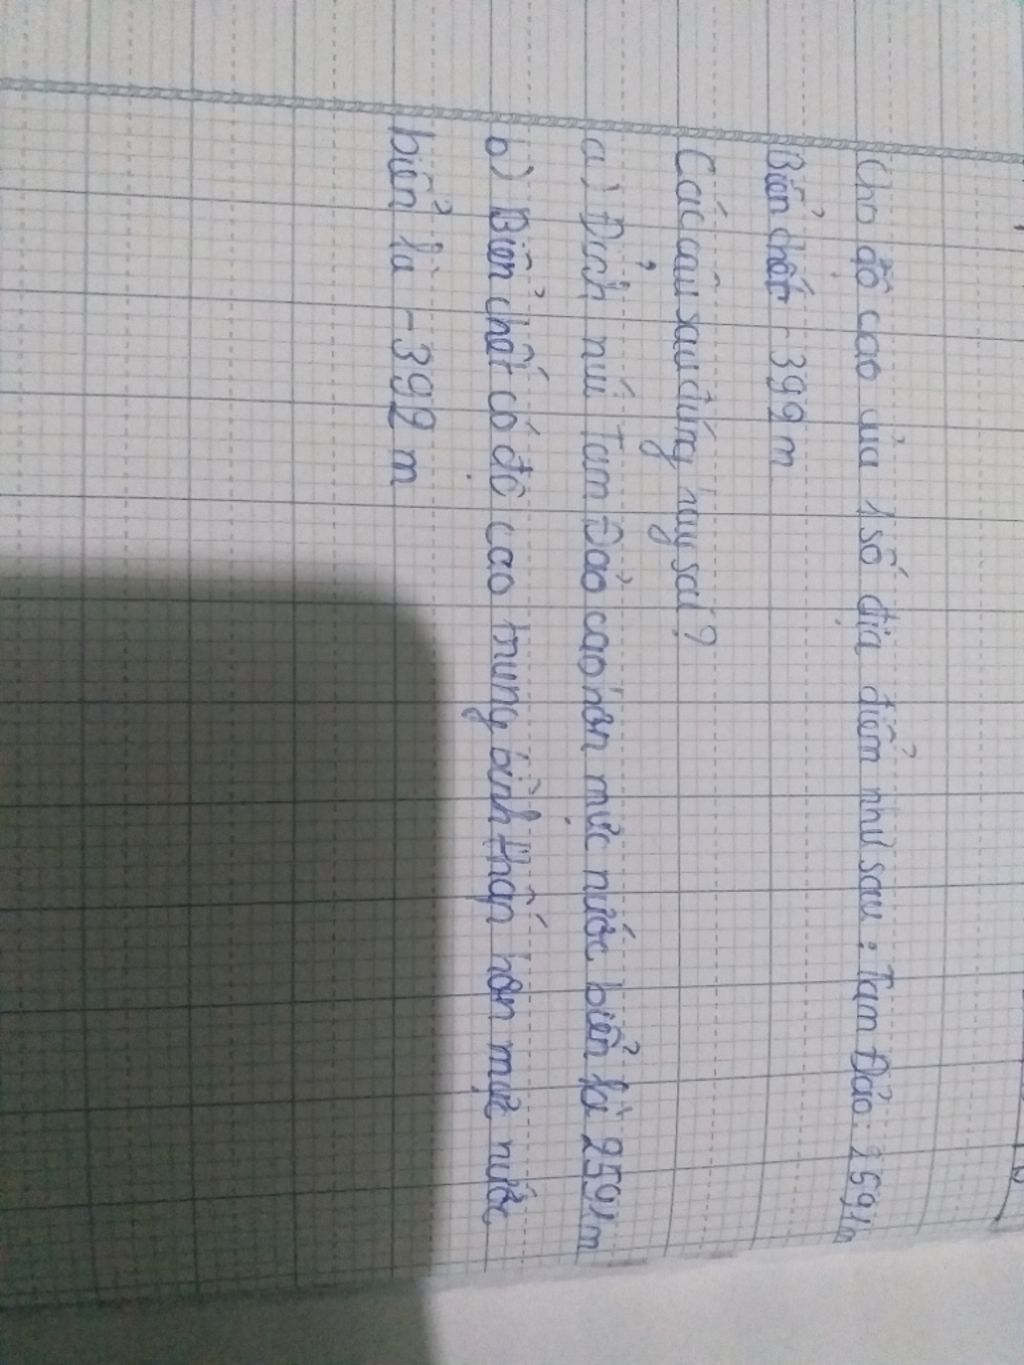 Cho độ cao của 1 số địa điểm như sau : Tam Đảo: 2591m
Biển chết - 392 m
Các câu sau đúng hay sai?
a) Đỉnh núi Tam Đảo cao hơn mực nước biển là 2591m
b) Biển chết có độ cao trung bình thấp hơn mực nước
biển là -392 m